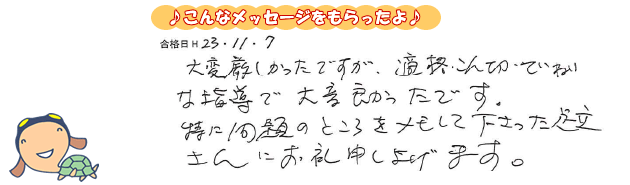 ♪こんなメッセージをもらったよ♪
合格日H 23.11.7
大変厳しかったですが、適格・こんせつ・ていねい
な指導で大変良かったです。
特に問題のところをメモして下さった足立
さんにお礼申し上げます。